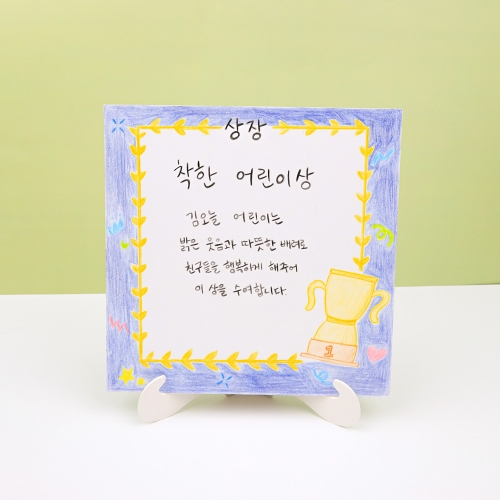 상장
착한 어린이상
김오늘 어린이는
밝은 웃음과 따뜻한 배려로
친구들을 행복하게 해주어
이 상을 수여합니다.
1